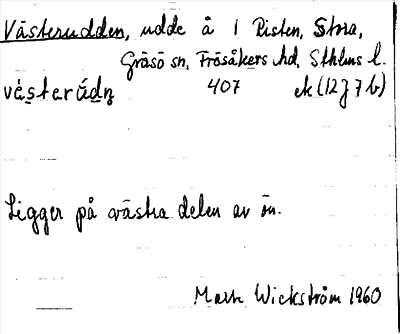 Västerudden, udde å 1 Risten, Stora,
Gräsö sn, Frösåkers hd, Sthlms l.
vès̱tərúḏn̥ 407 ek (12J7b)
Ligger på västra delen av ön.
Wickström 1960